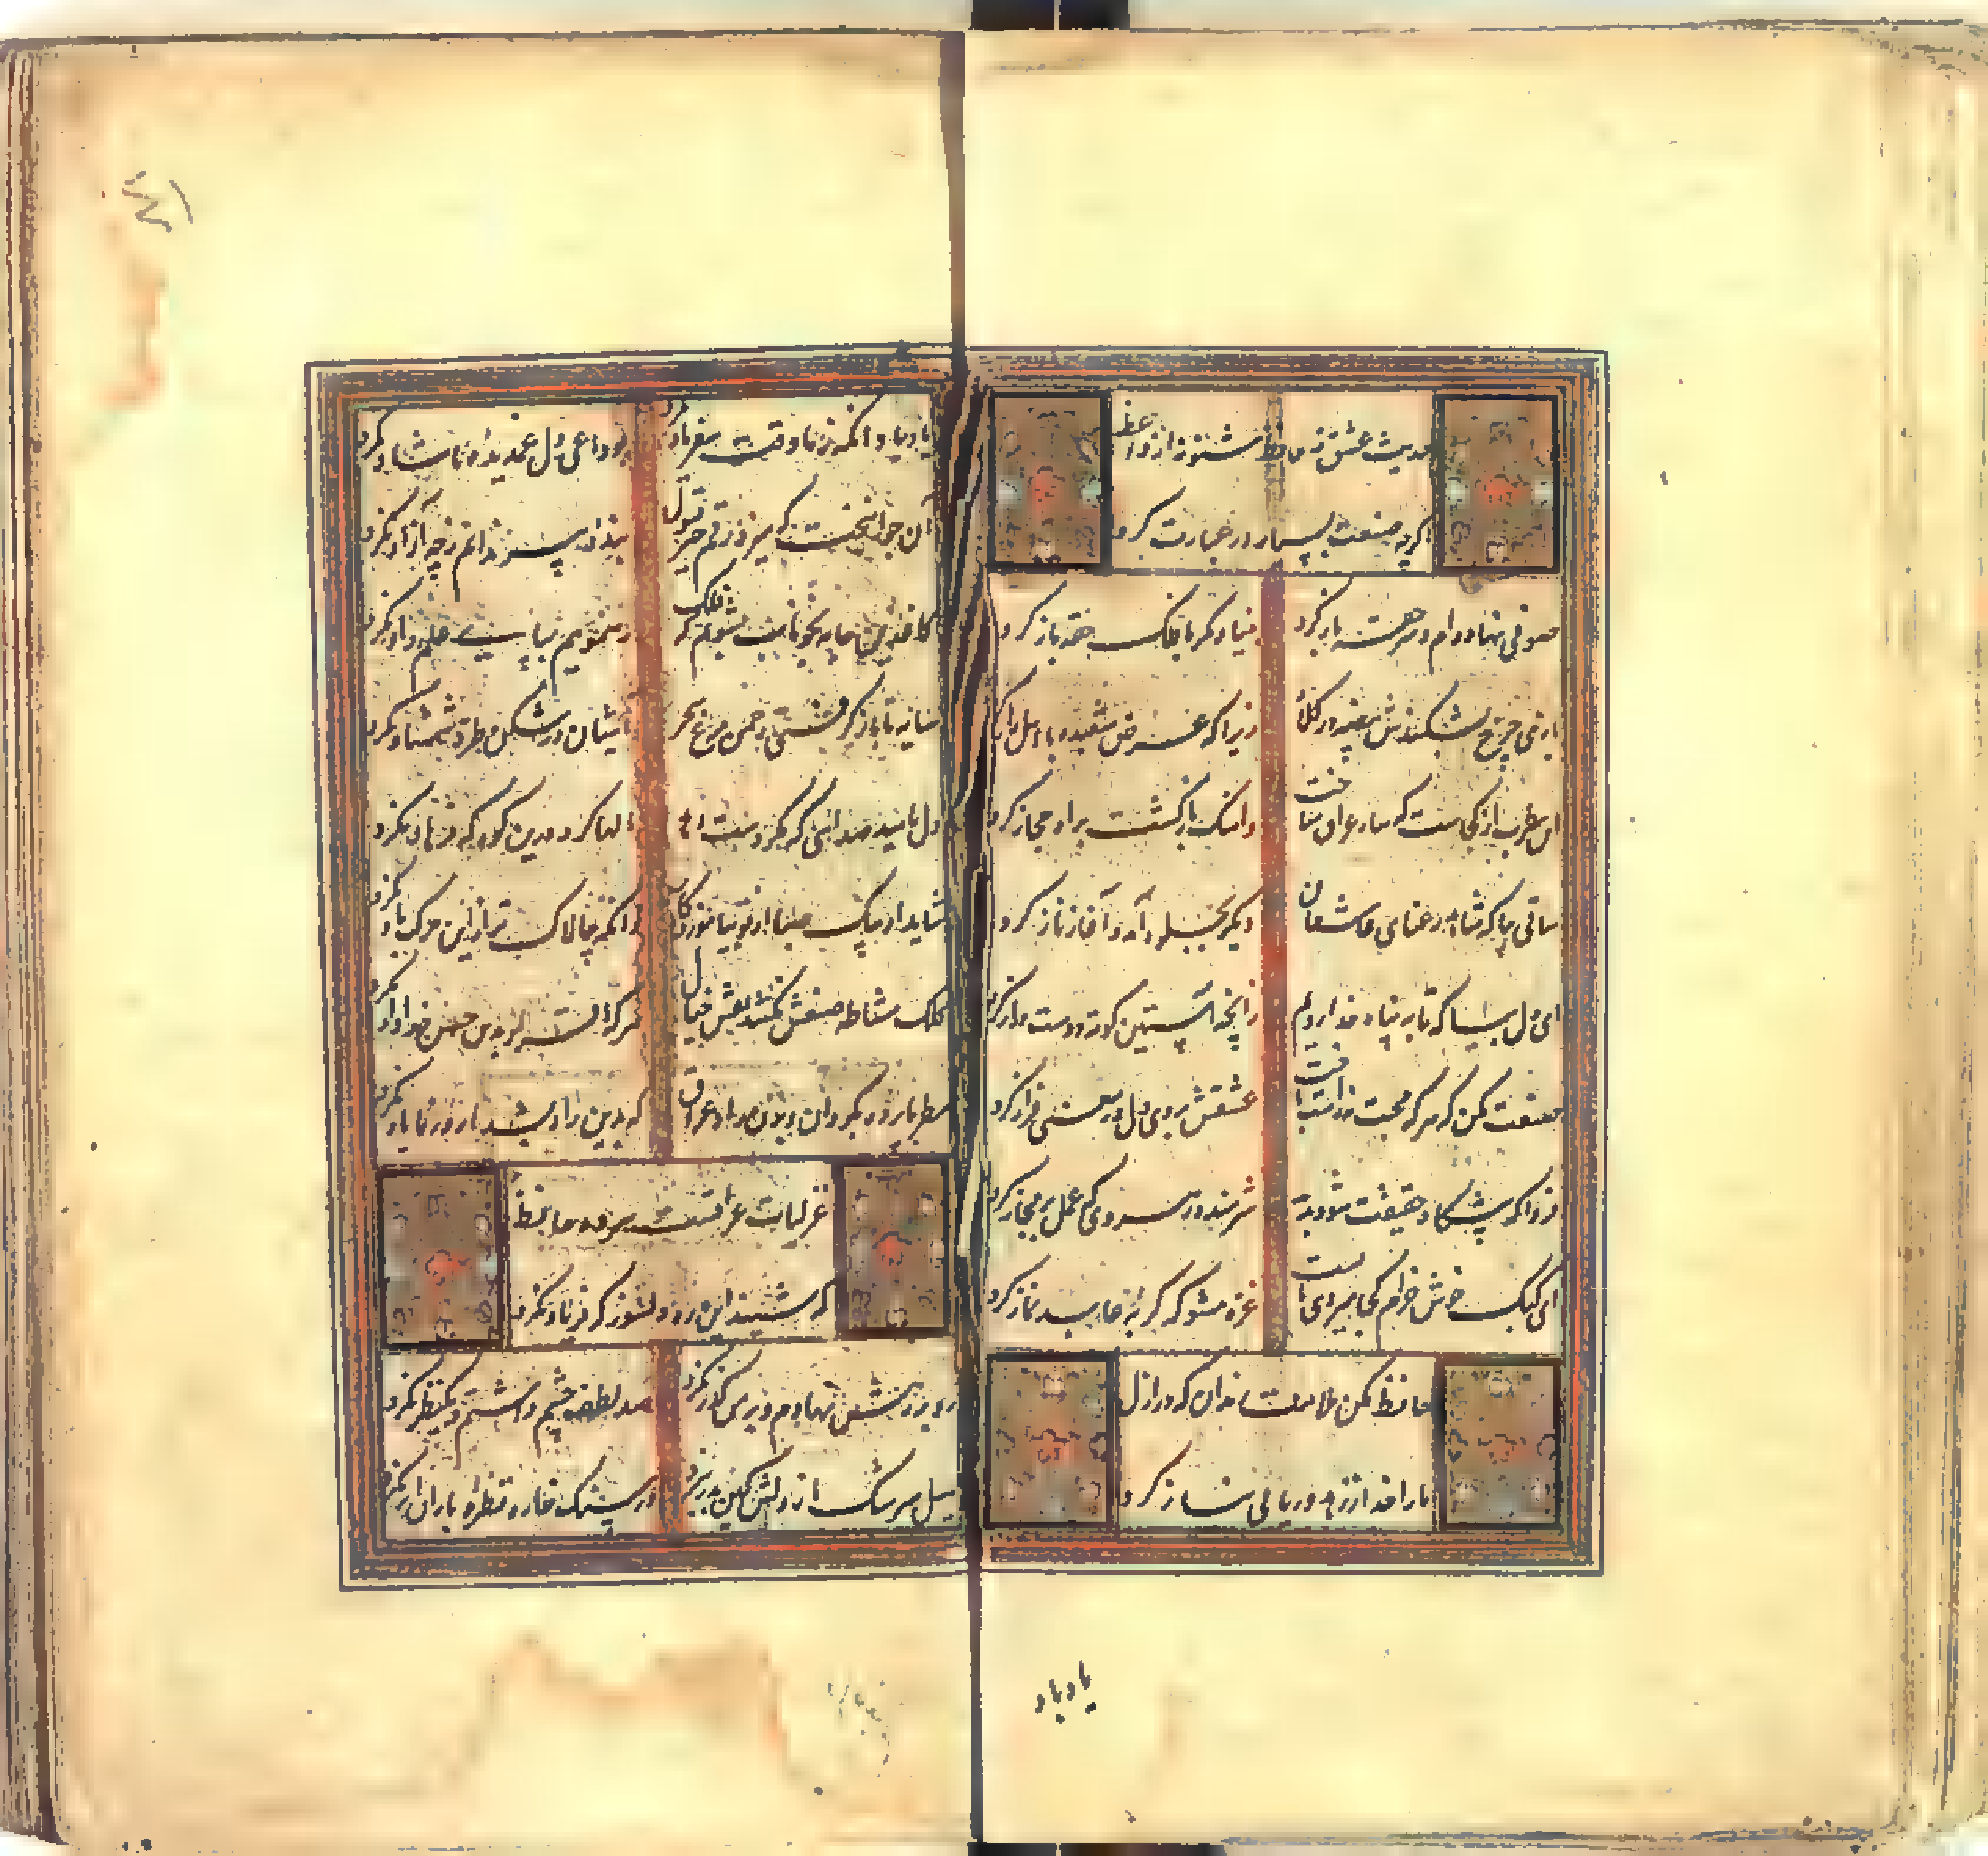 حدیث عشق ز حافظ شنو نه از واعظ
اگرچه صنعت بسیار در عبارت کرد
صوفی نهاد دام و سر حقه باز کرد
بنیاد مکر با فلک حقه باز کرد
بازی چرخ بشکندش بیضه در کلاه
زیرا که عرض شعبده با اهل راز کرد
این مطرب از کجاست که ساز عراق ساخت
و آهنگ بازگشت براه حجاز کرد
ساقی بیا که شاهد رعنای عاشقان
دیگر بجلوه آمد و آغاز ناز کرد
ای دل بیا که تا به پناه خدا رویم
زانچه آستین کوته و دست دراز کرد
صنعت مکن که هر که محبت نه راست باخت
عشقش بروی دل در معنی فراز کرد
فردا که پیشگاه حقیقت شود پدید
شرمنده رهروی که عمل بر مجاز کرد
ای کبک خوش خرام کجا میروی بایست
غره مشو که گربهٔ عابد نماز کرد
حافظ مکن ملامت رندان که در ازل
ما را خدا ز زهد ریائی بی نیاز کرد
یاد باد
یاد باد آنکه ز ما وقت سفر یاد نکرد
بوداعی دل غمدیدهٔ ما شاد نکرد
آن جوانبخت که میزد رقم خیر قبول
بندهٔ پیر ندانم ز چه آزاد نکرد
کاغذین جامه بخونابه بشویم که فلک
رهنمونیم بپای علم داد نکرد
سایه تا باز گرفتی ز چمن مرغ سحر
آشیان در شکن طرهٔ شمشاد نکرد
دل بامید صدائی که مگر در تو رسد
نالها کرد درین کوه که فرهاد نکرد
شاید ار پیک صبا از تو بیاموزد کار
زانکه چالاک تر از این حرکت باد نکرد
کلک مشاطهٔ صنعش نکشد نقش خیال
هر که اقرار بدین حسن خداداد نکرد
مطربا پرده بگردان و بزن راه عراق
که بدین راه بشد یار و ز ما یاد نکرد
غزلیات عراقیست سرود حافظ
که شنید این ره دلسوز که فریاد نکرد
رو بر رهش نهادم و بر من گذر نکرد
صد لطف چشم داشتم و یک نظر نکرد
سیل سرشک ما ز دلش کین بدر نبرد
در سنگ خاره قطرهٔ باران اثر نکرد